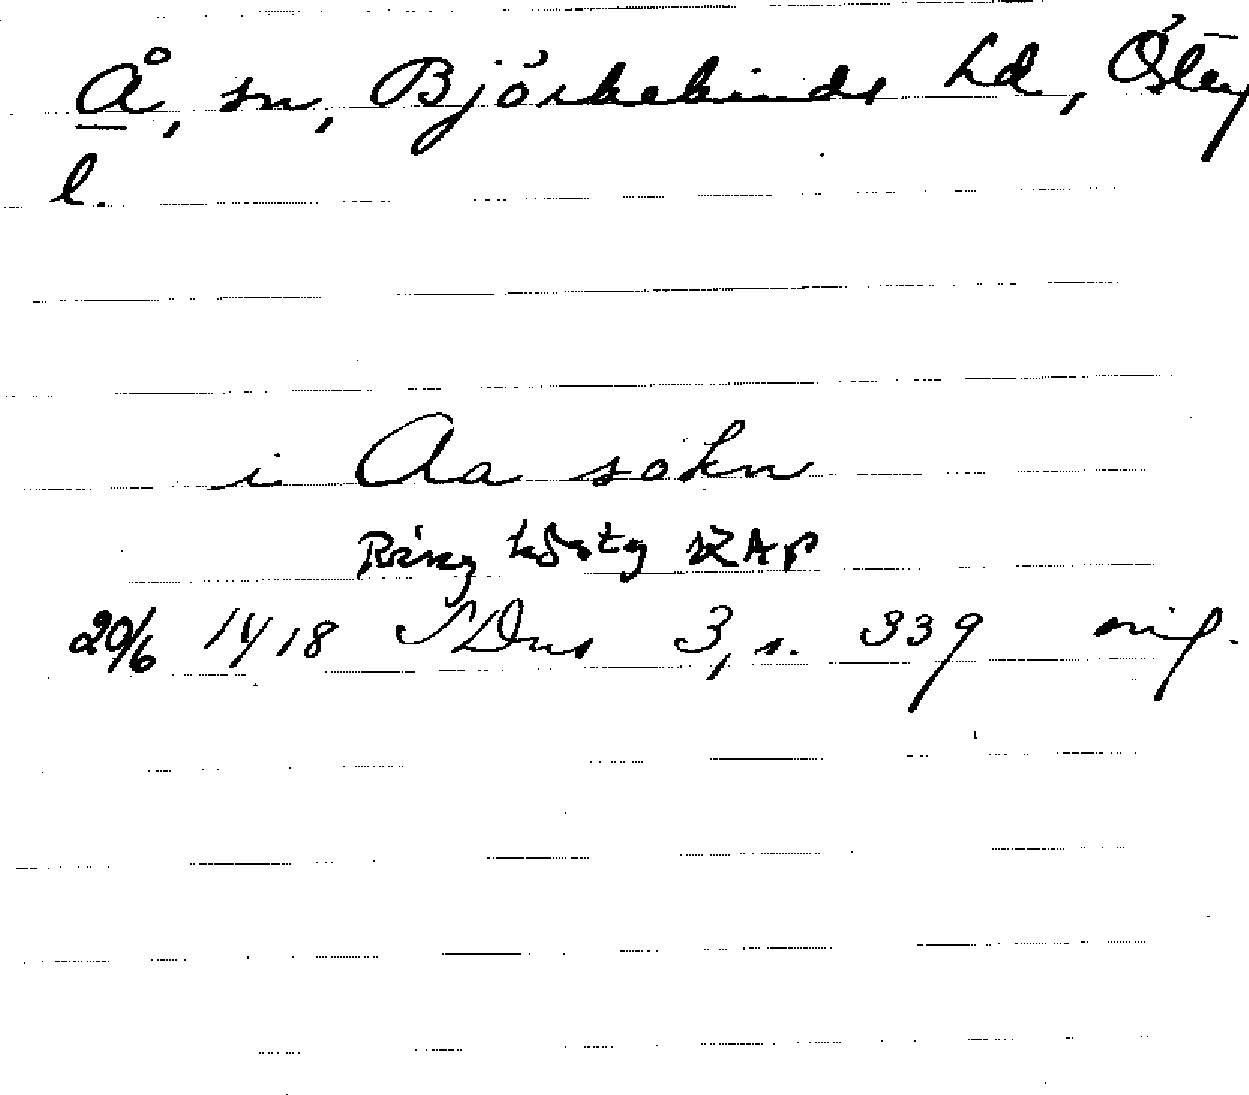 Å, sn, Björkekinds hd, Österg
l.
i Aa sokn
Ring
20/6 1418 SDns 3, s. 339 orig.